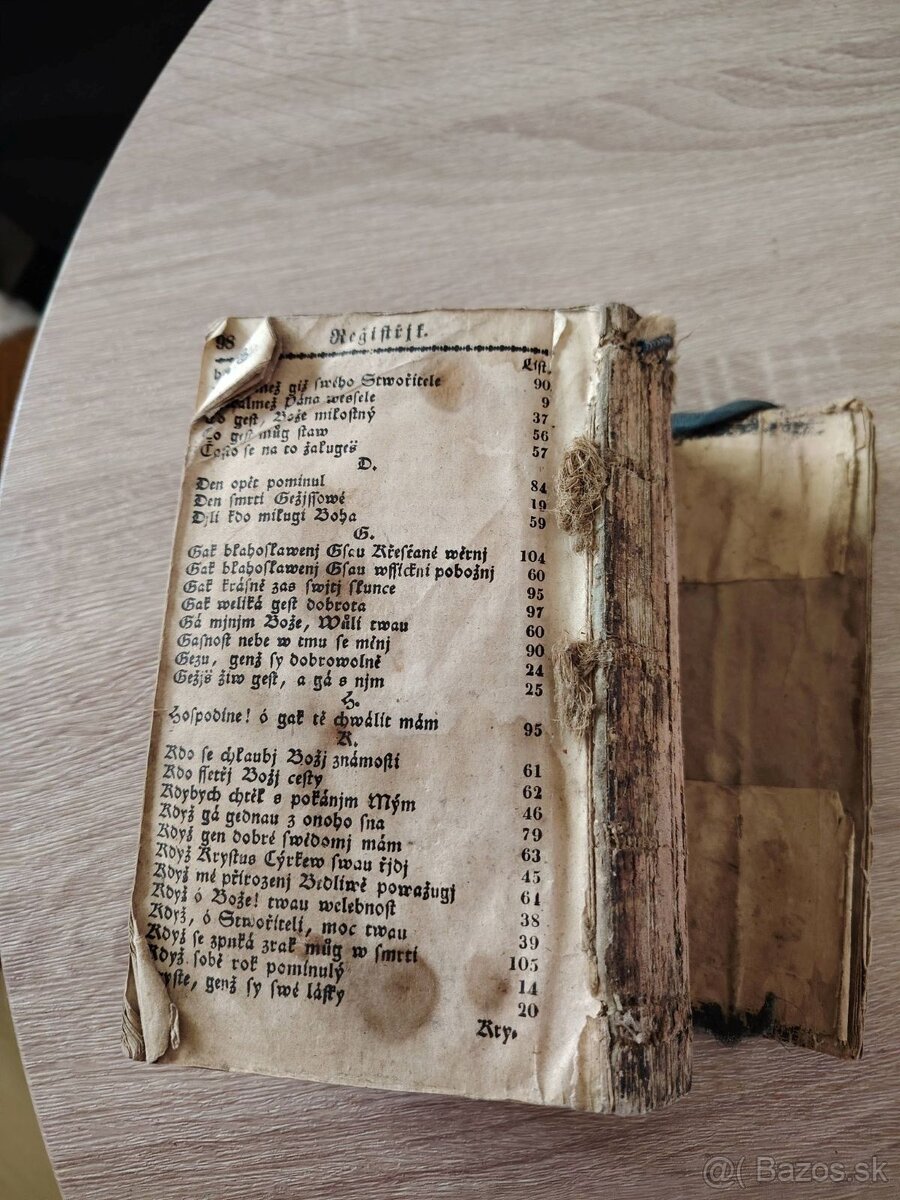 98 Regiſtřjk.
Liſt.
giž ſwého Stwořitele 90
Pána weſſele 9
Co geſt, Bože miloſtný 37
Co geſt můg ſtaw 56
Čoſto ſe na to žaluges 57
D.
Den opět pominul 84
Den ſmrti Gežjſſowé 19
Djli kdo milugi Boha 59
G.
Gak blahoſlawenj Gſau Křeſťané wěrnj 104
Gak blahoſlawenj Gſau wſſickni pobožnj 60
Gak kráſně zas ſwjtj ſlunce 95
Gak weliká geſt dobrota 97
Gá mjnjm Bože, Wůli twau 60
Gaſnoſt nebe w tmu ſe měnj 90
Gezu, genž ſy dobrowolně 24
Gežjš žiw geſt, a gá s njm 25
H.
Hoſpodine! ó gak tě chwálit mám 95
K.
Kdo ſe chlaubj Božj známoſti 61
Kdo ſſetřj Božj ceſty 62
Kdybych chtěl s pokánjm Mým 46
Když gá gednau z onoho ſna 79
Když gen dobré ſwědomj mám 63
Když Kryſtus Cýrkew ſwau řjdj 45
Když mé přirozenj Bedliwě powažugj 64
Když ó Bože! twau welebnoſt 38
Když, ó Stwořiteli, moc twau 39
Když ſe zpnká zrak můg w ſmrti 105
Když ſobě rok pominulý 14
genž ſy ſwé láſky 20
Kry.
@( Bazos.sk